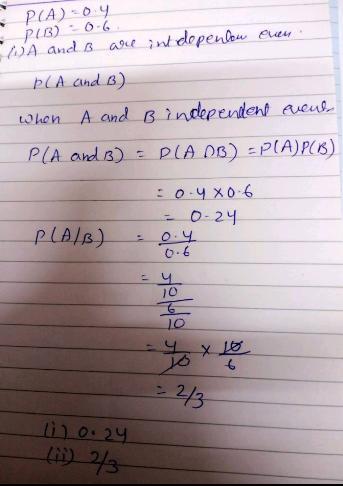 P(A) = 0.4
P(B) = 0.6.
(i) A and B are intdependow even.
P(A and B)
When A and B independent evens
P(A and B) = P(A ∩ B) = P(A)P(B)
= 0.4 X 0.6
= 0.24
P(A/B) = 0.4/0.6
= 4/10 / 6/10
= 4/10 × 10/6
= 2/3
(i) 0.24
(ii) 2/3